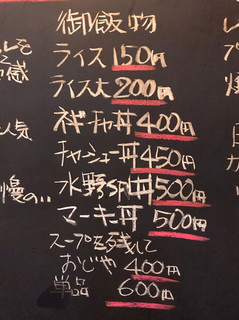 御飯物
ライス 150円
ライス大 200円
ネギチャ丼 400円
チャーシュー丼 450円
水野SP丼 500円
マーキン丼 500円
スープを残して
おじや 400円
単品 600円
感
人気
慢の..